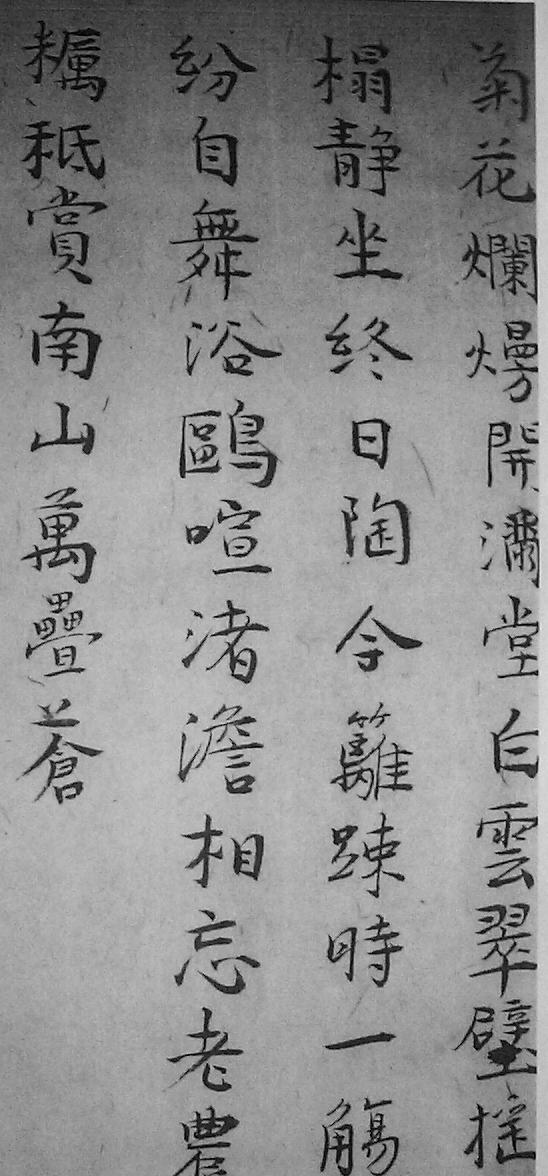 菊花爛熳開滿堂白雲翠壁
榻静坐終日陶令籬踈時一觴
紛自舞浴鷗喧渚澹相忘老農
糲秪賞南山萬疊蒼